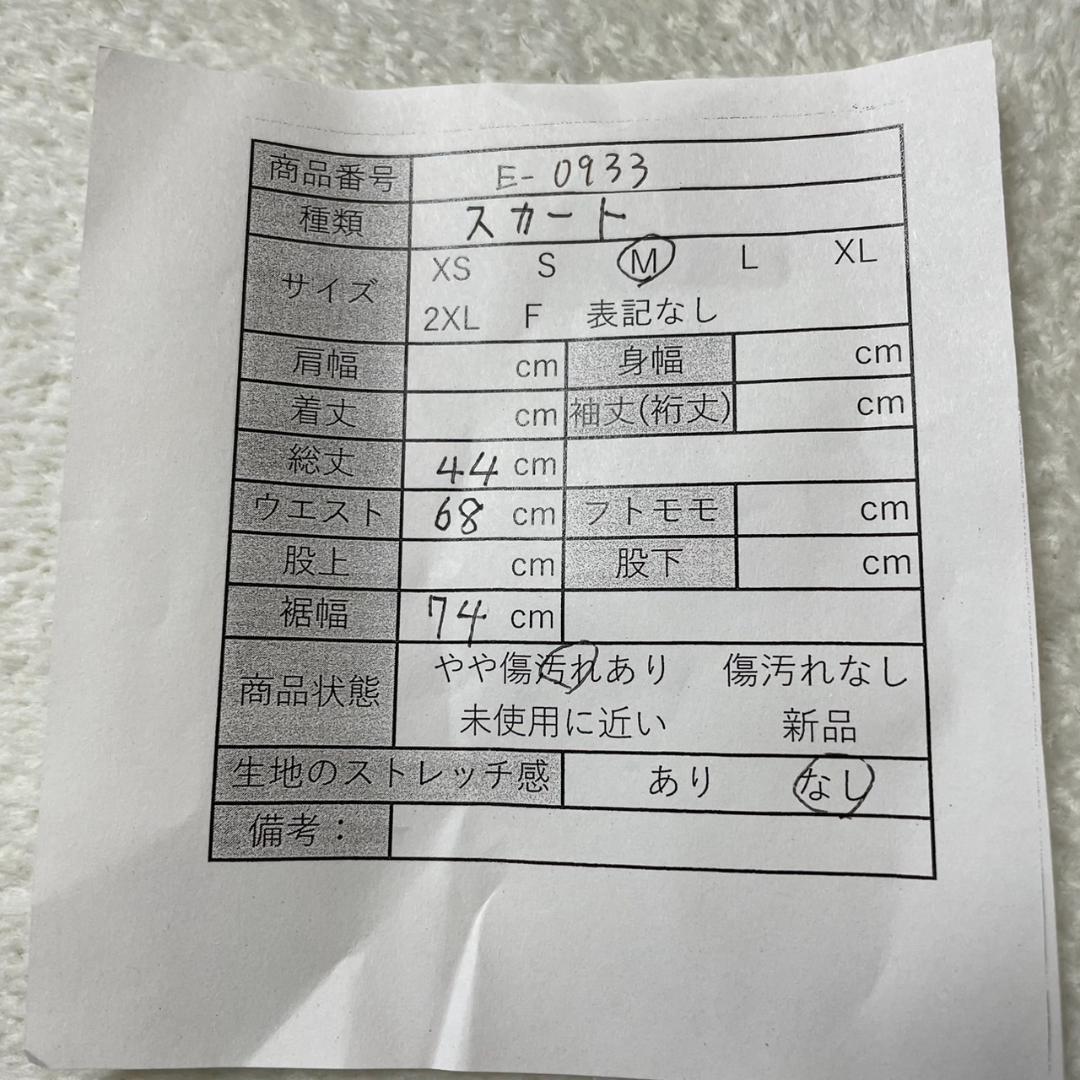 商品番号 E-0933
種類 スカート
サイズ XS S M L XL
2XL F 表記なし
肩幅 cm 身幅 cm
着丈 cm 袖丈(裄丈) cm
総丈 44 cm
ウエスト 68 cm フトモモ cm
股上 cm 股下 cm
裾幅 74 cm
商品状態 やや傷汚れあり 傷汚れなし
未使用に近い 新品
生地のストレッチ感 あり なし
備考：